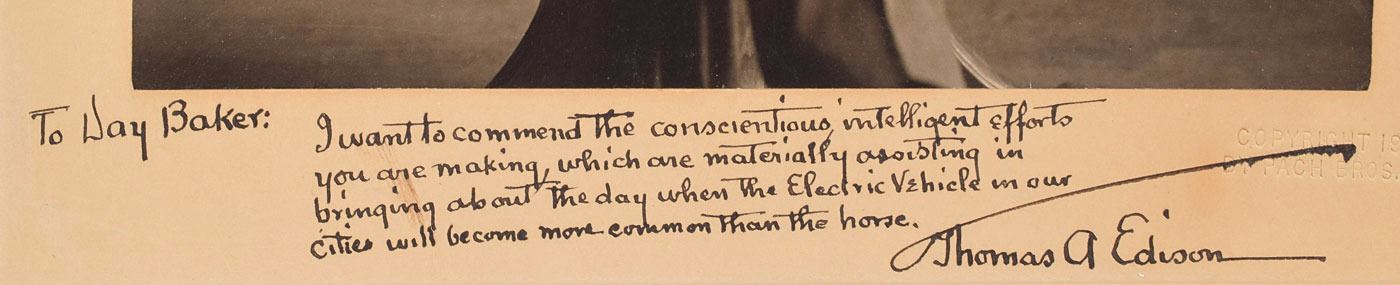 To Day Baker:
I want to commend the conscientious, intelligent efforts
you are making, which are materially assisting in
bringing about the day when the Electric Vehicle in our
cities will become more common than the horse.
Thomas A Edison
COPYRIGHT 19
BY PACH BROS.